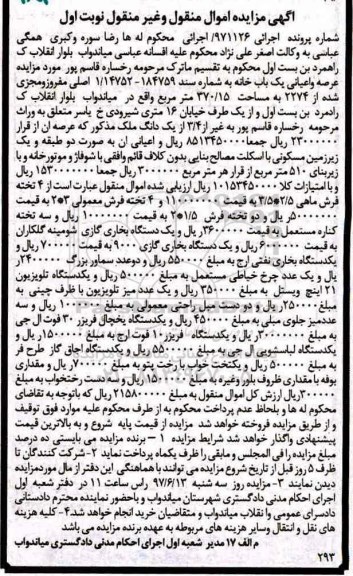 آگهی مزایده اموال منقول وغیر منقول نوبت اول
شماره پرونده اجرائی ۹۷۱۱۲۶/ اجرائی محکوم له ها رضا سوره وکبری همگی
عباسی به وکالت اصغر علی نژاد محکوم علیه افسانه عباسی میاندواب بلوار انقلاب ک
راهمرد بن بست اول محکوم به تقسیم ماترک مرحومه رخساره قاسم پور مورد مزایده
عرصه واعیانی یک باب خانه به شماره سند ۱۸۴۷۵۹-۱/۱۴۷۵۲ اصلی مفروزومجزی
شده از ۲۲۷۴ به مساحت ۳۷۰/۱۵ متر مربع واقع در میاندواب بلوار انقلاب ک
رادمرد بن بست اول و از یک طرف خیابان ۱۶ متری شیرودی خ یاسر متعلق به وراث
مرحومه رخساره قاسم پور به غیر از۳/۴ از یک دانگ ملک مذکور که عرصه ان از قرار
۲۳۰۰۰۰۰۰ ریال جمعا۸۵۱۳۴۵۰۰۰۰ ریال و اعیانی ان به صورت دو طبقه و یک
زیرزمین مسکونی با اسکلت مصالح بنایی بدون کلاف قائم وافقی با شوفاژ و موتورخانه و با
زیربنای ۵۱۰ متر مربع از قرار هر متر مربع ۳۰۰۰۰۰۰ ریال جمعا ۱۵۳۰۰۰۰۰۰۰ ریال
و با امتیازات کلا ۱۰۱۵۳۴۵۰۰۰۰ ریال ارزیابی شده اموال منقول عبارت است از ۴ تخته
فرش ماهی ۲/۵*۳/۵ به قیمت ۱۱۰۰۰۰۰۰ و ۴ تخته فرش معمولی ۳*۲ به قیمت
۵۰۰۰۰۰۰ ریال و دو تخته فرش ۱/۵*۲ به قیمت ۱۰۰۰۰۰۰ ریال و سه تخته
کناره مستعمل به قیمت ۳۶۰۰۰۰۰ ریال و یک دستگاه بخاری گازی شومینه گلکاران
به قیمت ۶۰۰۰۰۰۰ ریال و یک دستگاه بخاری گازی ۹۰۰۰ به قیمت ۷۰۰۰۰۰۰ ریال و
یکدستگاه بخاری نفتی ارج به مبلغ ۵۵۰۰۰۰ ریال و دوعدد سماور بزرگ ۲۴۰۰۰۰۰ر
یال و یک عدد چرخ خیاطی مستعمل به مبلغ ۵۰۰۰۰۰ ریال و یکدستگاه تلویزیون
۲۱ اینچ ویستل به مبلغ ۳۵۰۰۰۰۰ ریال و یک عدد میز تلویزیون با ظرف چینی به
مبلغ۲۵۰۰۰۰۰ ریال و دو دست مبل راحتی معمولی به مبلغ ۱۰۰۰۰۰۰۰ ریال و سه
عددمیز جلوی مبلی به مبلغ ۴۵۰۰۰۰۰ ریال و یکدستگاه یخچال فریزر ۳۰ فوت ال جی
به مبلغ ۳۰۰۰۰۰۰۰ ریال و یکدستگاه فریزر۱۰ فوت ارج به مبلغ ۱۵۰۰۰۰۰ ریال و
یکدستگاه لباسشویی ال جی به مبلغ ۵۵۰۰۰۰۰ ریال و یکدستگاه اجاق گاز طرح فر
به مبلغ ۵۰۰۰۰۰۰ ریال و یکتخت خواب با رخت پتو به مبلغ ۷۰۰۰۰۰۰ ریال و مقداری
بوفه با مقداری ظروف بلور وغیره به مبلغ ۱۵۰۰۰۰۰۰ ریال و سه دست رختخواب به مبلغ
۳۰۰۰۰۰۰ ریال ارزش کل اموال منقول به مبلغ ۲۱۵۸۰۰۰۰۰ ریال که باتوجه به تقاضای
محکوم له ها و بلحاظ عدم پرداخت محکوم به از طرف محکوم علیه موارد فوق توقیف
و از طریق مزایده فروخته خواهد شد مزایده از قیمت پایه شروع و به بالاترین قیمت
پیشنهادی واگذار خواهد شد شرایط مزایده ۱ – برنده مزایده می بایستی ده درصد
مبلغ مزایده را فی المجلس و مابقی را ظرف یکماه پرداخت نماید ۲-شرکت کنندگان تا
ظرف ۵ روز قبل از تاریخ شروع مزایده می توانند با هماهنگی این دفتر از مال موردمزایده
دیدن نمایند ۳- مزایده روز سه شنبه ۹۷/۶/۱۳ راس ساعت ۱۱ در دفتر شعبه اول
اجرای احکام مدنی دادگستری شهرستان میاندواب و باحضور نماینده محترم دادستانی
دادسرای عمومی وا نقلاب میاندواب و متقاضیان خرید انجام خواهد شد.۴- کلیه هزینه
های نقل و انتقال وسایر هزینه های مربوطه به عهده برنده مزایده می باشد
م الف ۱۷ مدیر شعبه اول اجرای احکام مدنی دادگستری میاندواب
۲۹۳